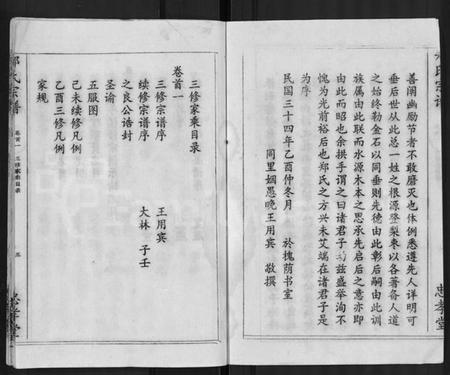 善闱幽励节者不敢磨灭也体例悉遵先人详明可
垂后世从此总一姓之根源登梨枣以各著备人道
之始终勒金石以同垂则先德由此彰后嗣由此训
族属由此联而水源木本之思承先启后之意亦即
由此而昭也余拱手谓之曰诸君子兹盛举洵不
愧为光前裕后也郑氏之方兴未艾端在诸君子是
为序
民国三十四年乙酉仲冬月 於槐荫书室
同里姻愚晚王用宾 敬撰
忠孝堂
氏宗谱
卷首一 三修家乘目录
三
忠孝堂
三修家乘目录
卷首一
三修宗谱序 王用宾
续修宗谱序 大林 子壬
之良公诰封
圣谕
五服图
己未续修凡例
乙酉三修凡例
家规